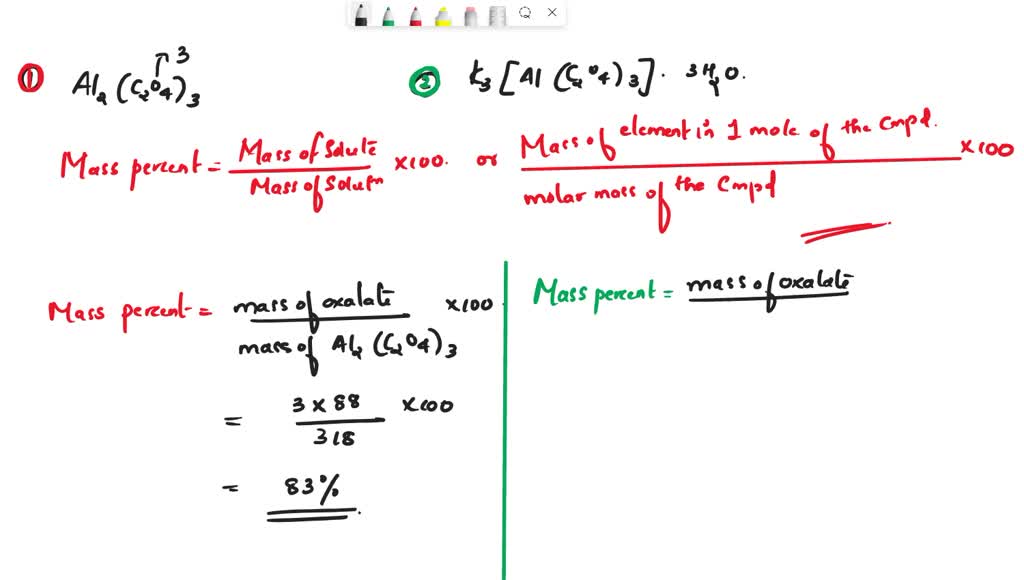 ① Al₂(C₂O₄)₃ ↑3
② K₃[Al(C₂O₄)₃]. 3H₂O.
Mass percent = Mass of Solute / Mass of Solutn ×100. or Mass of element in 1 mole of the Cmpd. / molar mass of the Cmpd ×100
Mass percent = mass of oxalate / mass of Al₂(C₂O₄)₃ ×100.
= 3×88 / 318 ×100
= 83%.
Mass percent = mass of oxalate